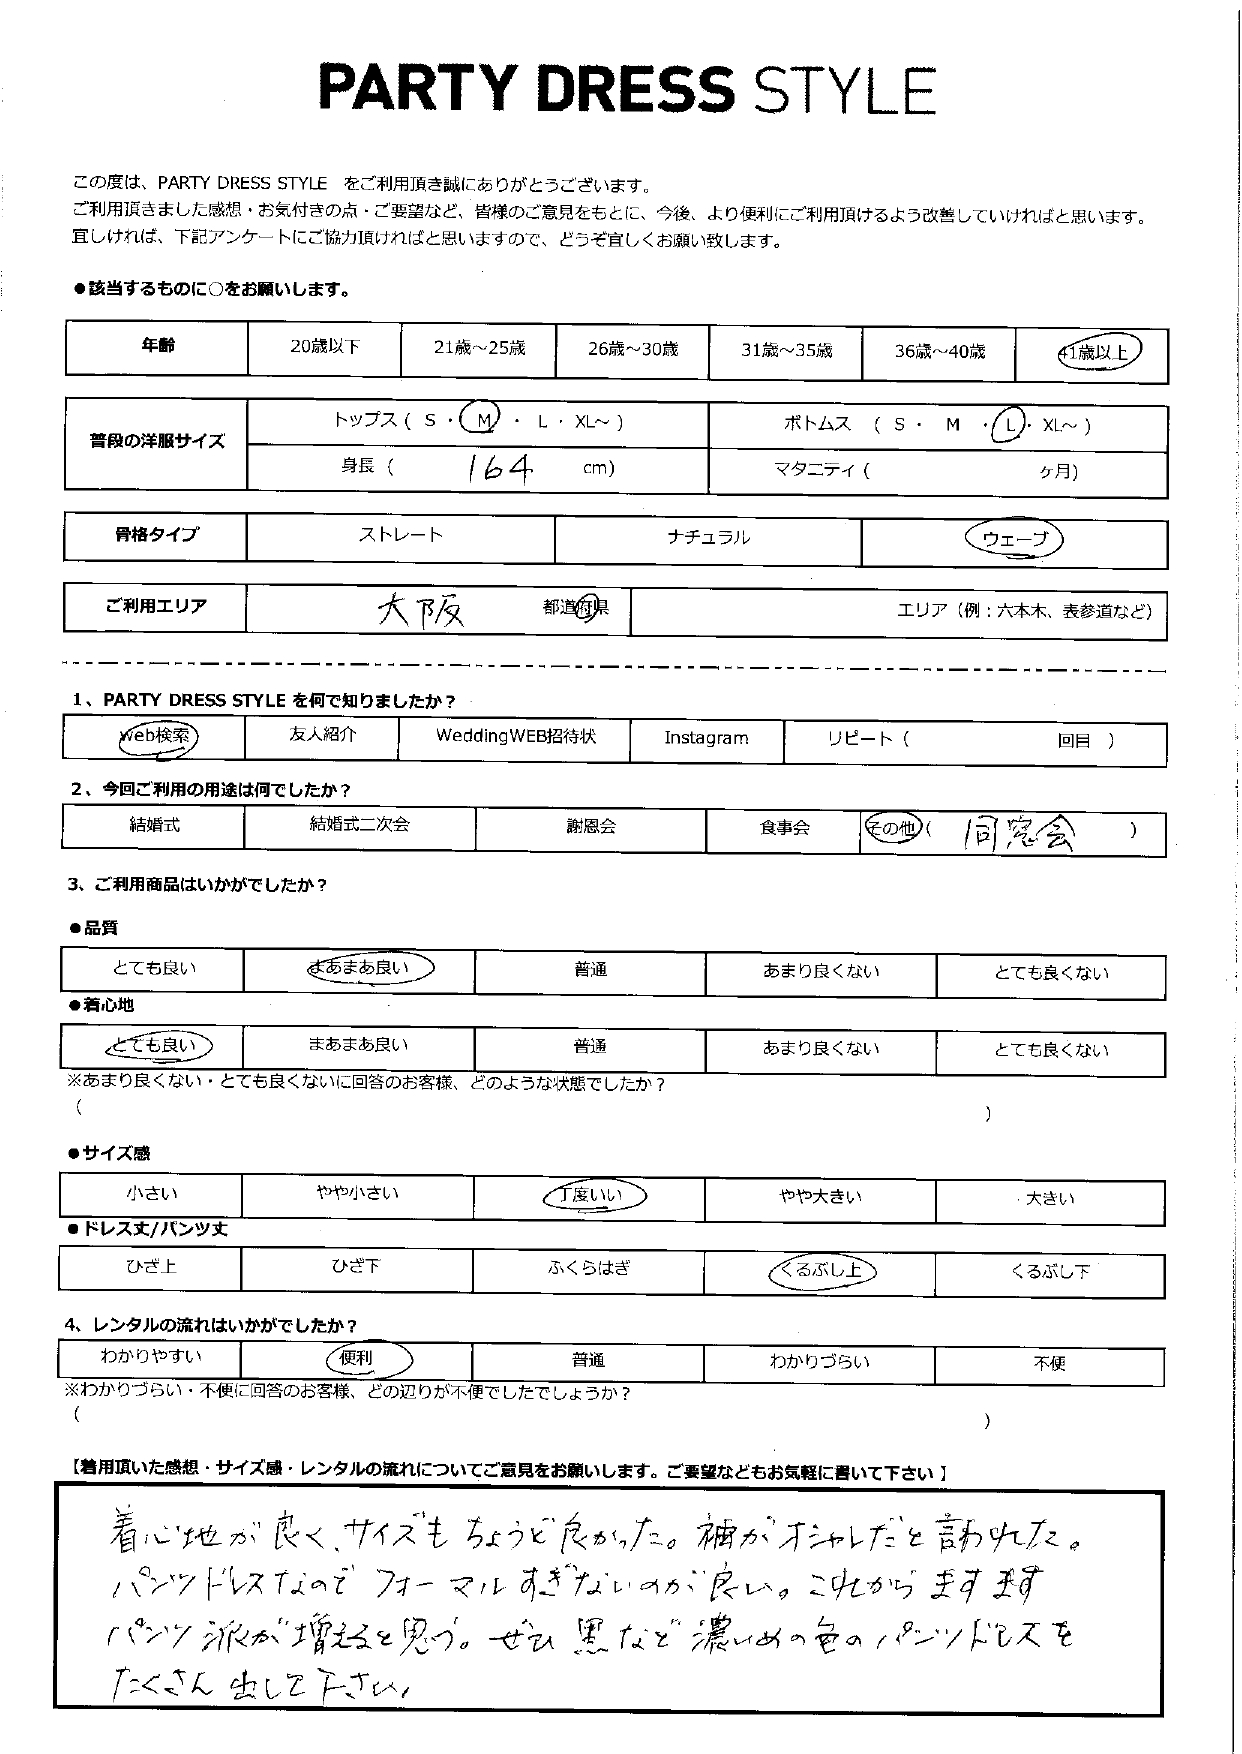 PARTY DRESS STYLE
この度は、PARTY DRESS STYLE をご利用頂き誠にありがとうございます。
ご利用頂きました感想・お気付きの点・ご要望など、皆様のご意見をもとに、今後、より便利にご利用頂けるよう改善していければと思います。
宜しければ、下記アンケートにご協力頂ければと思いますので、どうぞ宜しくお願い致します。
●該当するものに○をお願いします。
年齢 20歳以下 21歳～25歳 26歳～30歳 31歳～35歳 36歳～40歳 41歳以上
普段の洋服サイズ トップス ( S ・ M ・ L ・ XL～ ) ボトムス ( S ・ M ・ L ・ XL～ )
身長 ( 164 cm) マタニティ ( ヶ月)
骨格タイプ ストレート ナチュラル ウェーブ
ご利用エリア 大阪 都道府県 エリア（例：六本木、表参道など）
1、PARTY DRESS STYLE を何で知りましたか？
Web検索 友人紹介 WeddingWEB招待状 Instagram リピート ( 回目 )
2、今回ご利用の用途は何でしたか？
結婚式 結婚式二次会 謝恩会 食事会 その他 ( 同窓会 )
3、ご利用商品はいかがでしたか？
●品質
とても良い まあまあ良い 普通 あまり良くない とても良くない
●着心地
とても良い まあまあ良い 普通 あまり良くない とても良くない
※あまり良くない・とても良くないに回答のお客様、どのような状態でしたか？
( )
●サイズ感
小さい やや小さい 丁度いい やや大きい 大きい
●ドレス丈/パンツ丈
ひざ上 ひざ下 ふくらはぎ くるぶし上 くるぶし下
4、レンタルの流れはいかがでしたか？
わかりやすい 便利 普通 わかりづらい 不便
※わかりづらい・不便に回答のお客様、どの辺りが不便でしたでしょうか？
( )
【着用頂いた感想・サイズ感・レンタルの流れについてご意見をお願いします。ご要望などもお気軽に書いて下さい】
着心地が良く、サイズもちょうど良かった。袖がオシャレだと言われた。
パンツドレスなのでフォーマルすぎないのが良い。これからますます
パンツ派が増えると思う。ぜひ黒など濃いめの色のパンツドレスを
たくさん出して下さい。